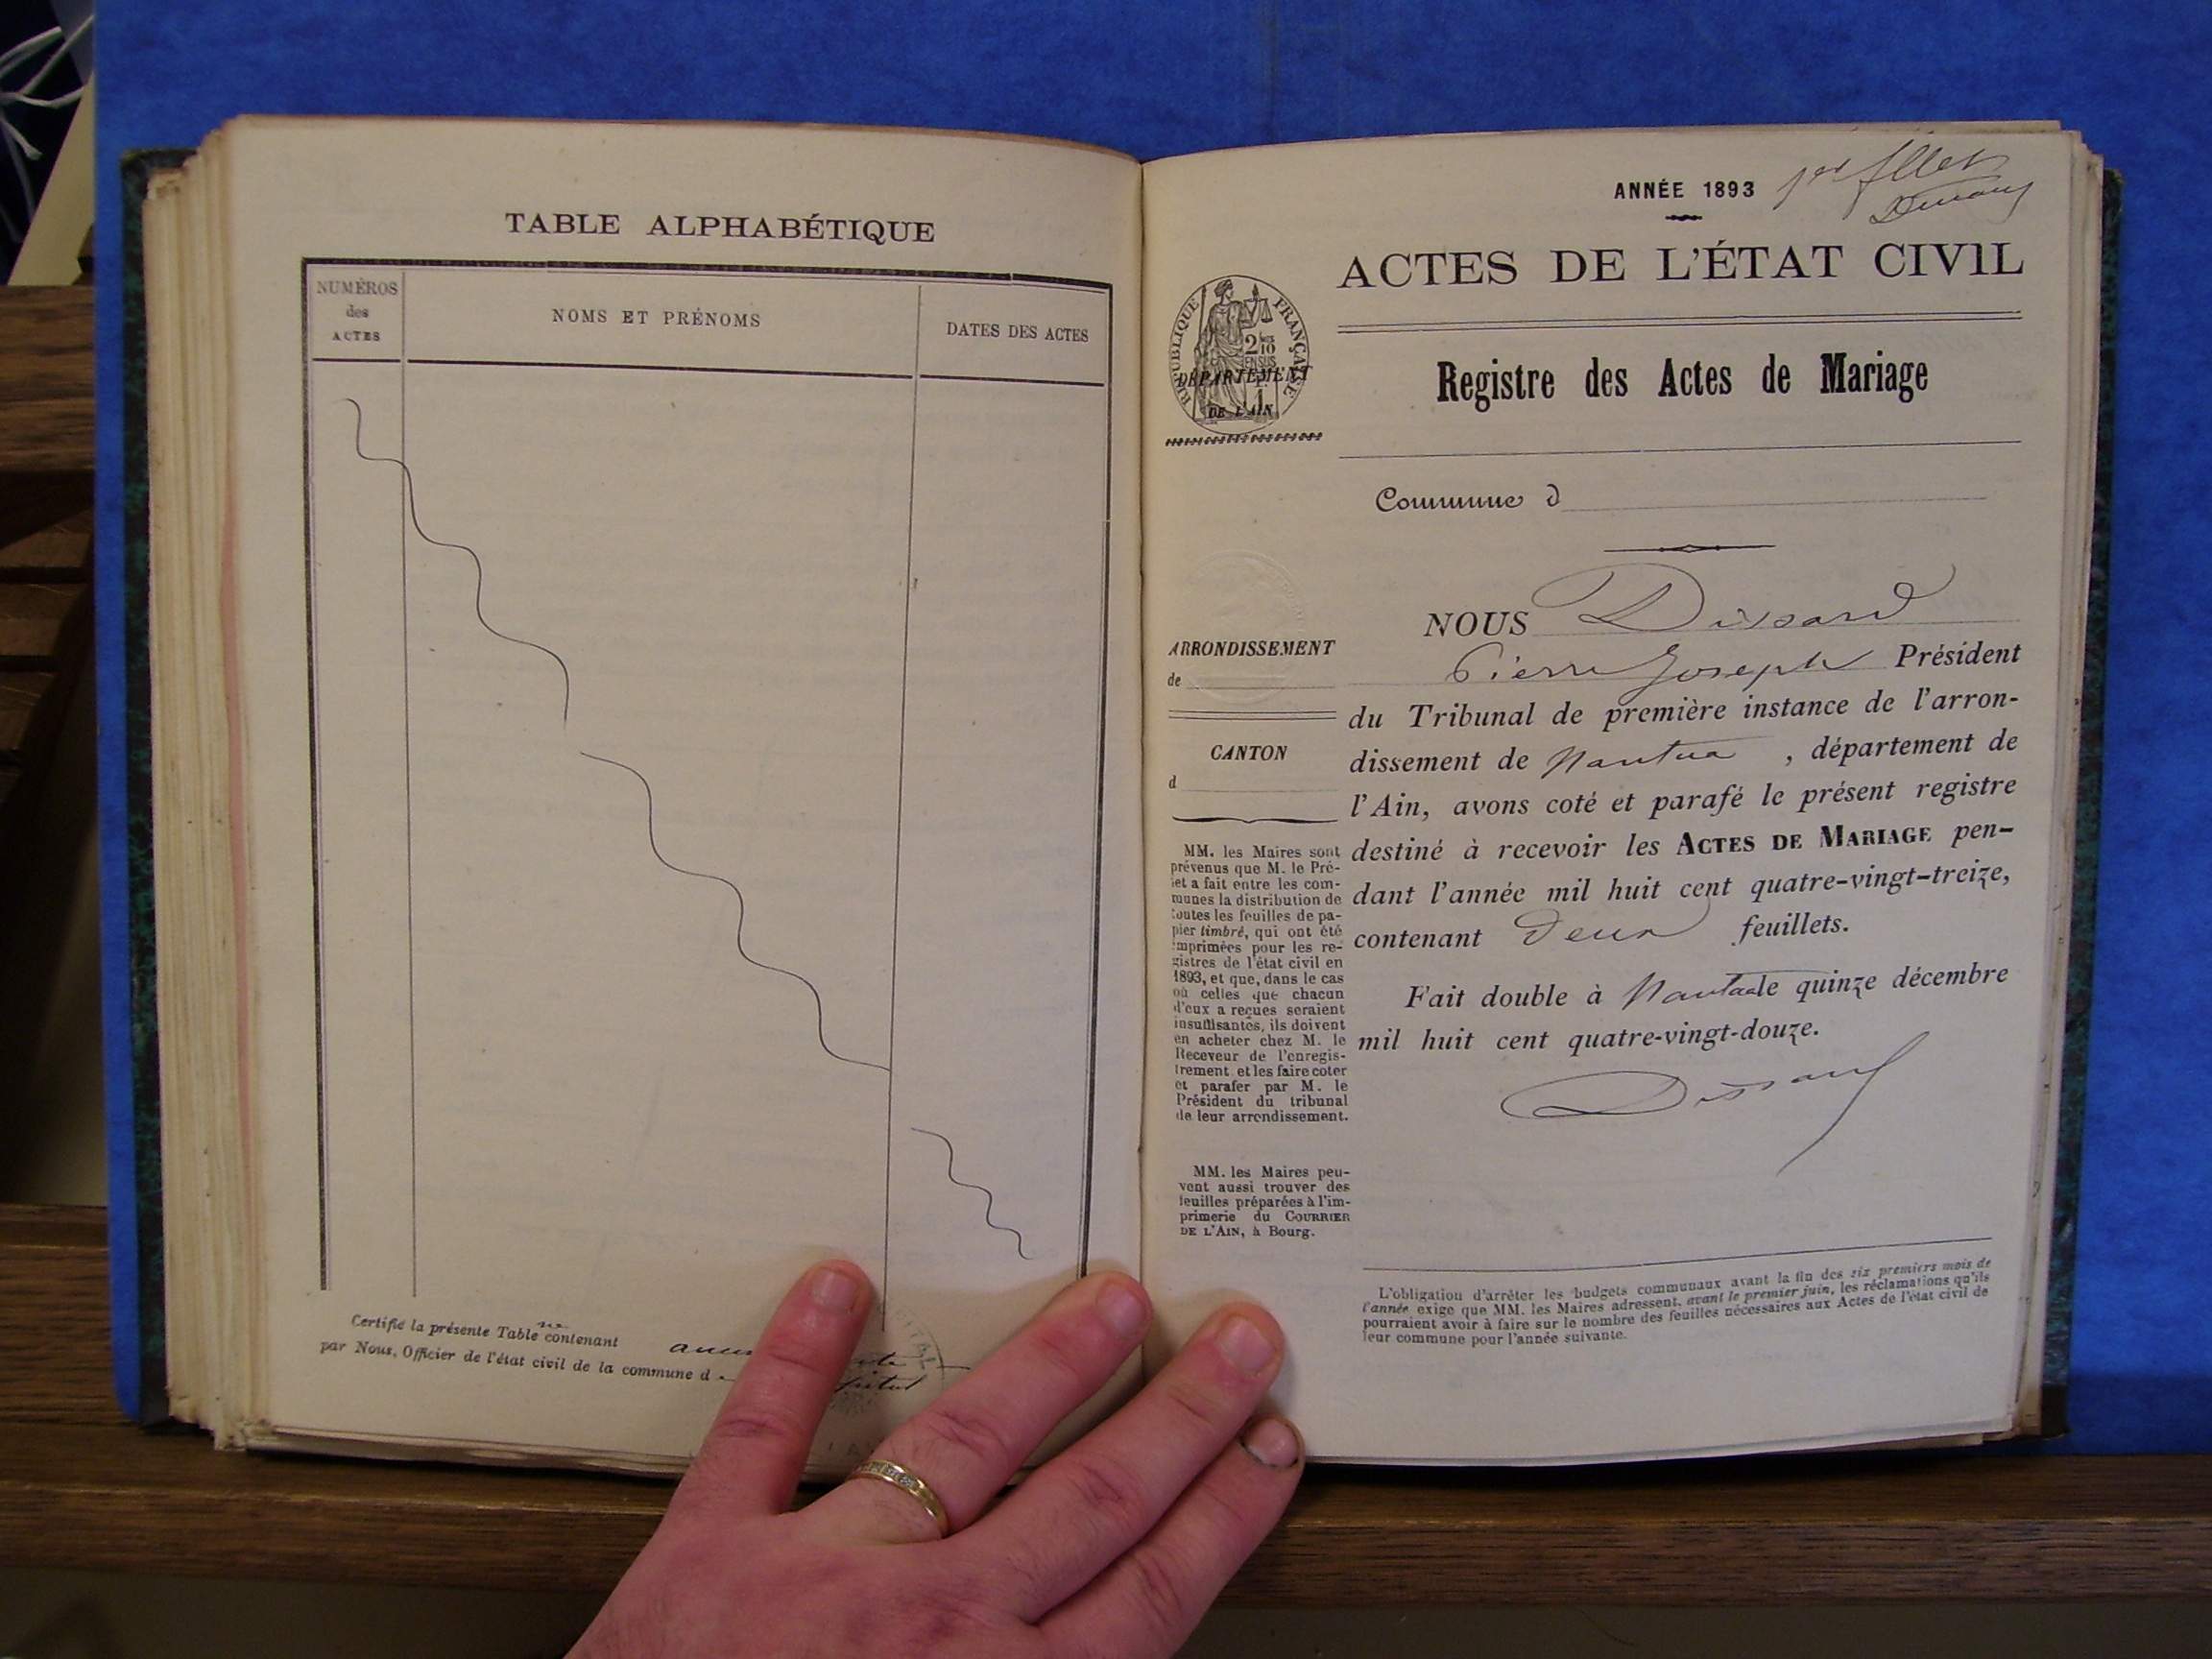 TABLE ALPHABÉTIQUE
NUMÉROS
des
ACTES
NOMS ET PRÉNOMS
DATES DES ACTES
Certifié la présente Table ne contenant
par Nous, Officier de l'état civil de la commune d
ANNÉE 1893
ACTES DE L'ÉTAT CIVIL
RÉPUBLIQUE FRANÇAISE
DÉPARTEMENT
DE L'AIN
Registre des Actes de Mariage
Commune d
ARRONDISSEMENT
de
CANTON
d
MM. les Maires sont
prévenus que M. le Pré-
fet a fait entre les com-
munes la distribution de
toutes les feuilles de pa-
pier timbré, qui ont été
imprimées pour les re-
gistres de l'état civil en
1893, et que, dans le cas
où celles que chacun
d'eux a reçues seraient
insuffisantes, ils doivent
en acheter chez M. le
Receveur de l'enregis-
trement et les faire coter
et parafer par M. le
Président du tribunal
de leur arrondissement.
MM. les Maires peu-
vent aussi trouver des
feuilles préparées à l'im-
primerie du COURRIER
DE L'AIN, à Bourg.
NOUS Dissard
Pierre Joseph Président
du Tribunal de première instance de l'arron-
dissement de Nantua, département de
l'Ain, avons coté et parafé le présent registre
destiné à recevoir les ACTES DE MARIAGE pen-
dant l'année mil huit cent quatre-vingt-treize,
contenant deux feuillets.
Fait double à Nantua le quinze décembre
mil huit cent quatre-vingt-douze.
Dissard
L'obligation d'arrêter les budgets communaux avant la fin des six premiers mois de
l'année exige que MM. les Maires adressent, avant le premier juin, les réclamations qu'ils
pourraient avoir à faire sur le nombre des feuilles nécessaires aux Actes de l'état civil de
leur commune pour l'année suivante.